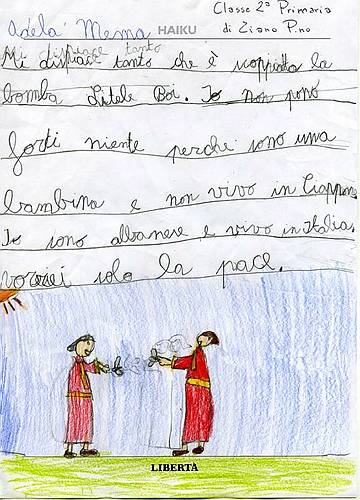 Classe 2ª Primaria
di Ziano P.no
Adela Mema
HAIKU
Mi dispiace tanto
Mi dispiace tanto che è scoppiata la
bomba Litele Boi. Io non poso
farti niente perche sono una
bambina e non vivo in Giappone
Io sono albanese e vivo in Italia.
vorrei solo la pace.
LIBERTÀ